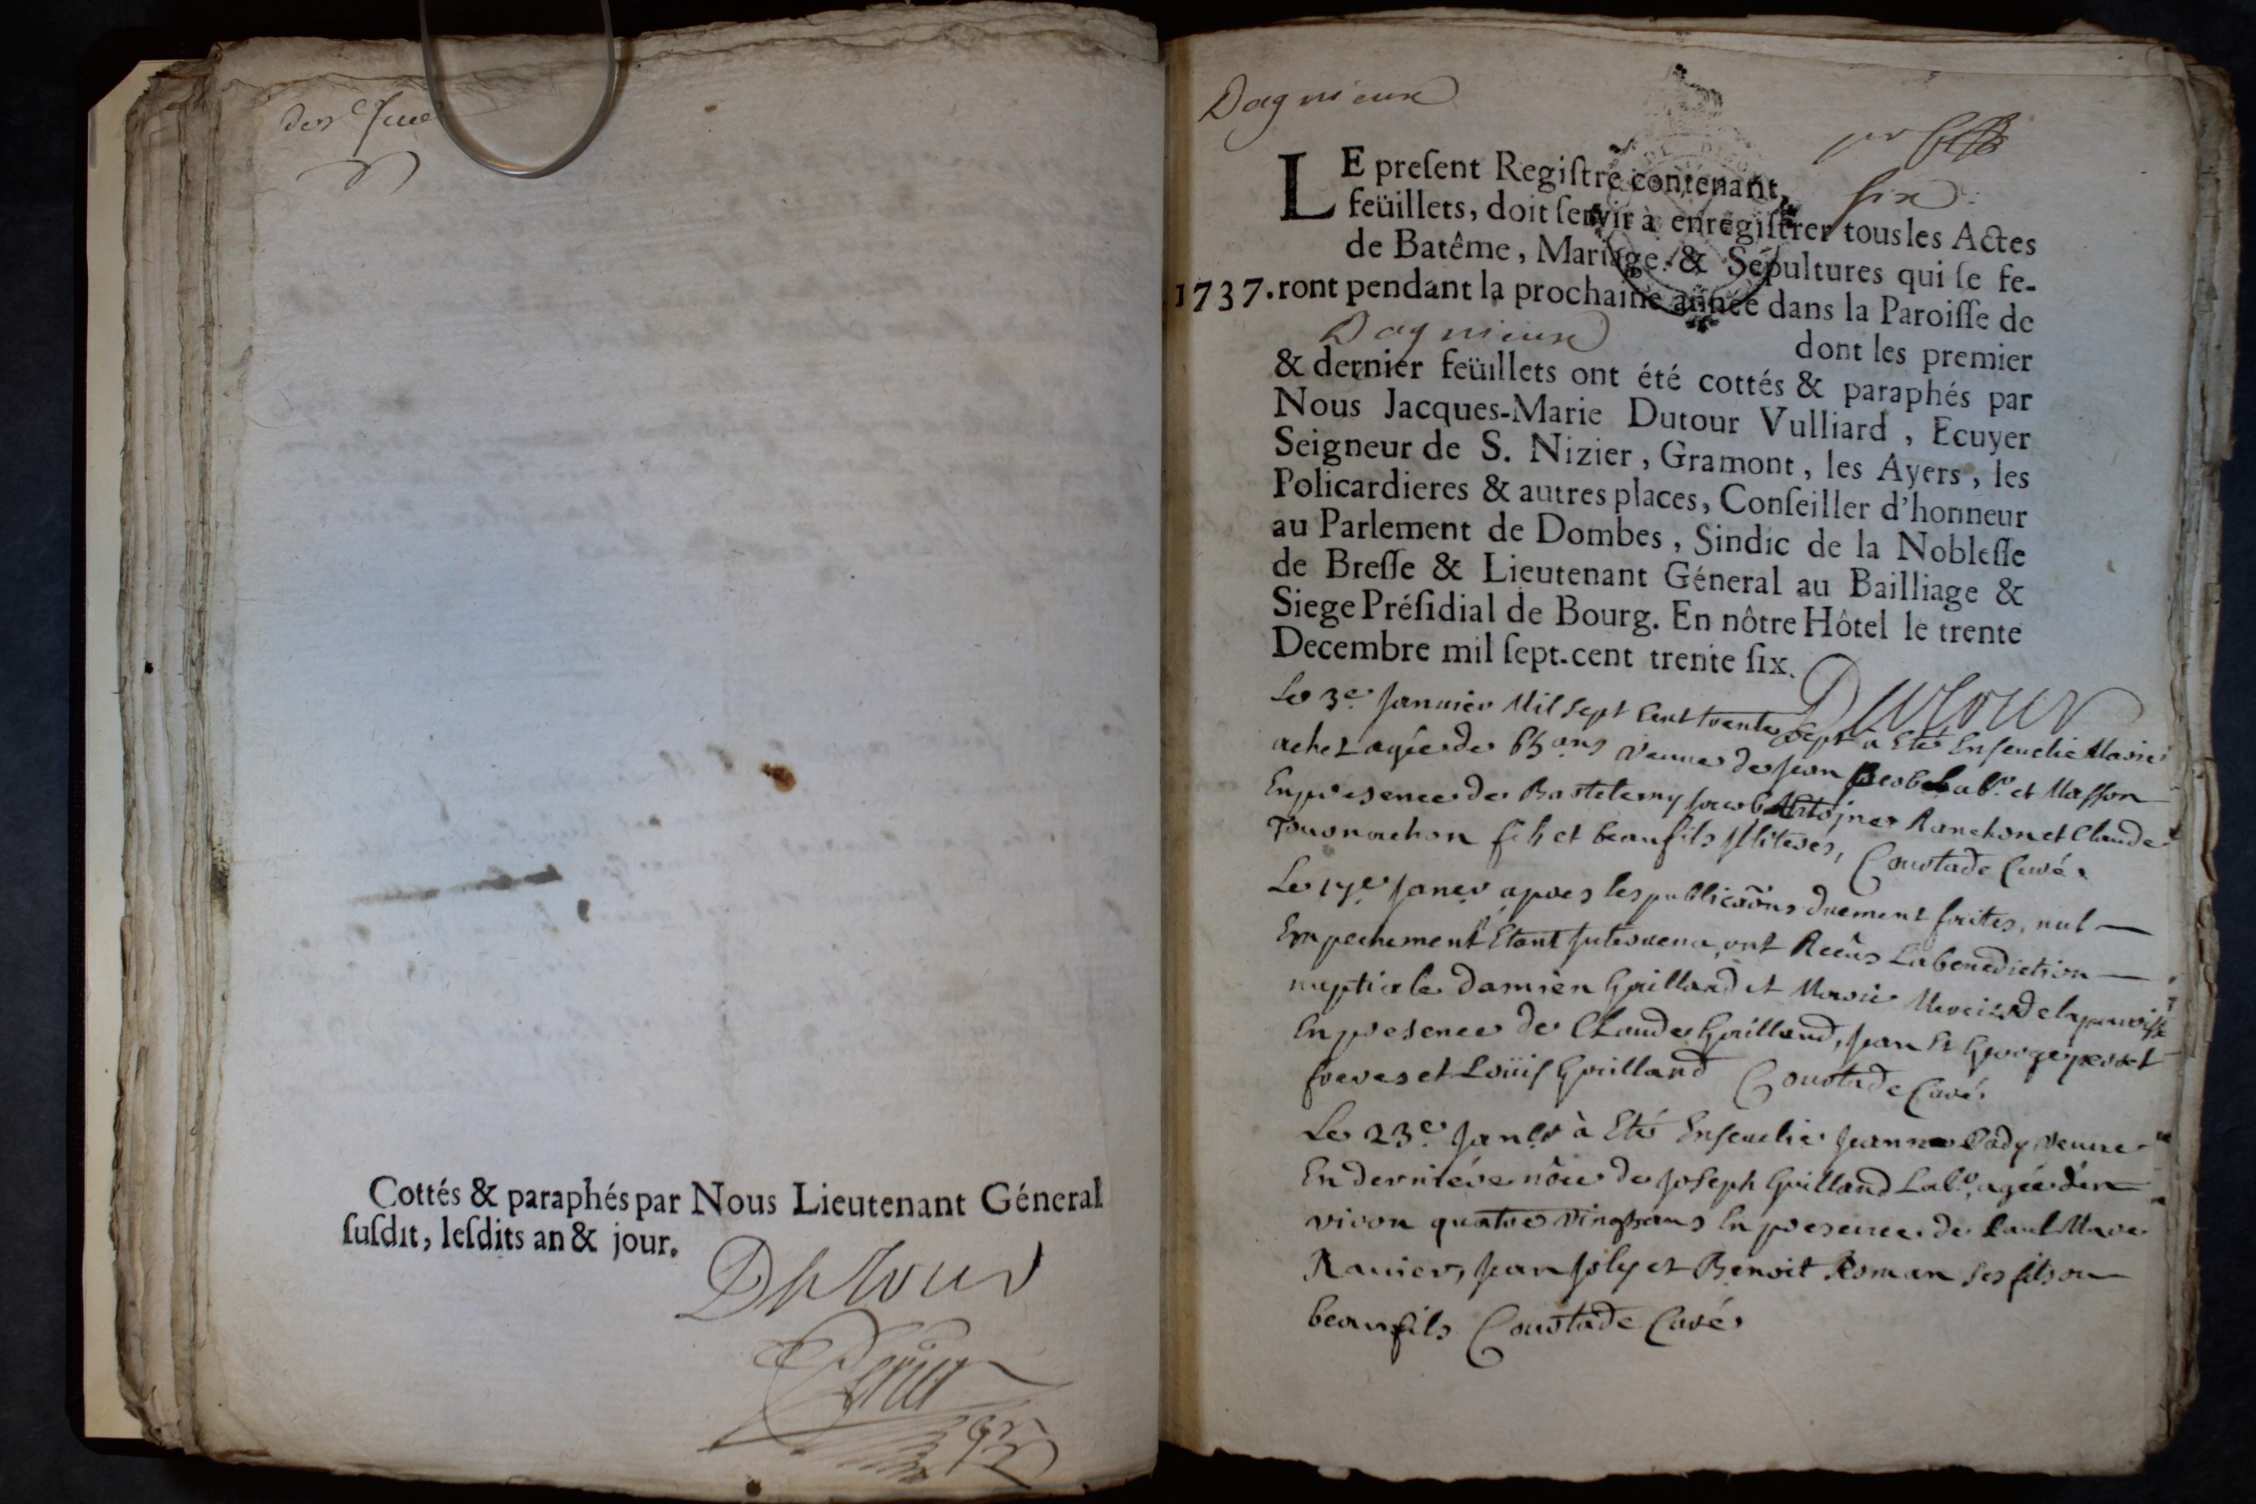 Cottés & paraphés par Nous Lieutenant Géneral
ſuſdit, leſdits an & jour.
Dutour
Dagnieux
LE preſent Regiſtre contenant,
six
feüillets, doit ſervir à enregiſtrer tous les Actes
de Batême, Mariage & Sépultures qui ſe fe-
1737. ront pendant la prochaine année dans la Paroiſſe de
Dagnieux dont les premier
& dernier feüillets ont été cottés & paraphés par
Nous Jacques-Marie Dutour Vulliard, Ecuyer
Seigneur de S. Nizier, Gramont, les Ayers, les
Policardieres & autres places, Conſeiller d'honneur
au Parlement de Dombes, Sindic de la Nobleſſe
de Breſſe & Lieutenant Géneral au Bailliage &
Siege Préſidial de Bourg. En nôtre Hôtel le trente
Decembre mil ſept-cent trente ſix.
Dutour
Le 3e Janvier Mil Sept Cent trente Sept à Eté Ensevelie Marie
agée de 65 ans veuve de Jean et Masson
En presence de Bartelemy Jacob Antoine Ranchon et Claude
fils et beaufils Coustade Curé
Le 17e Janer apres les publicaõns duement faites, nul
Empechement Etant Intervenu, ont Reçus La benediction
nuptiale Damien Guilland et Marie de la paroisse
En presence de Claude Guilland, Jean Et George
freres et Loüis Guilland Coustade Curé
Le 23e Janer à Eté Ensevelie Jeanne veuve
En derniére nôce de Joseph Guilland Labr, agée d'en
viron quatre vingts ans En presence de Paul
Ravier, Jean Joly et Benoit Roman ses fils ou
beaufils Coustade Curé